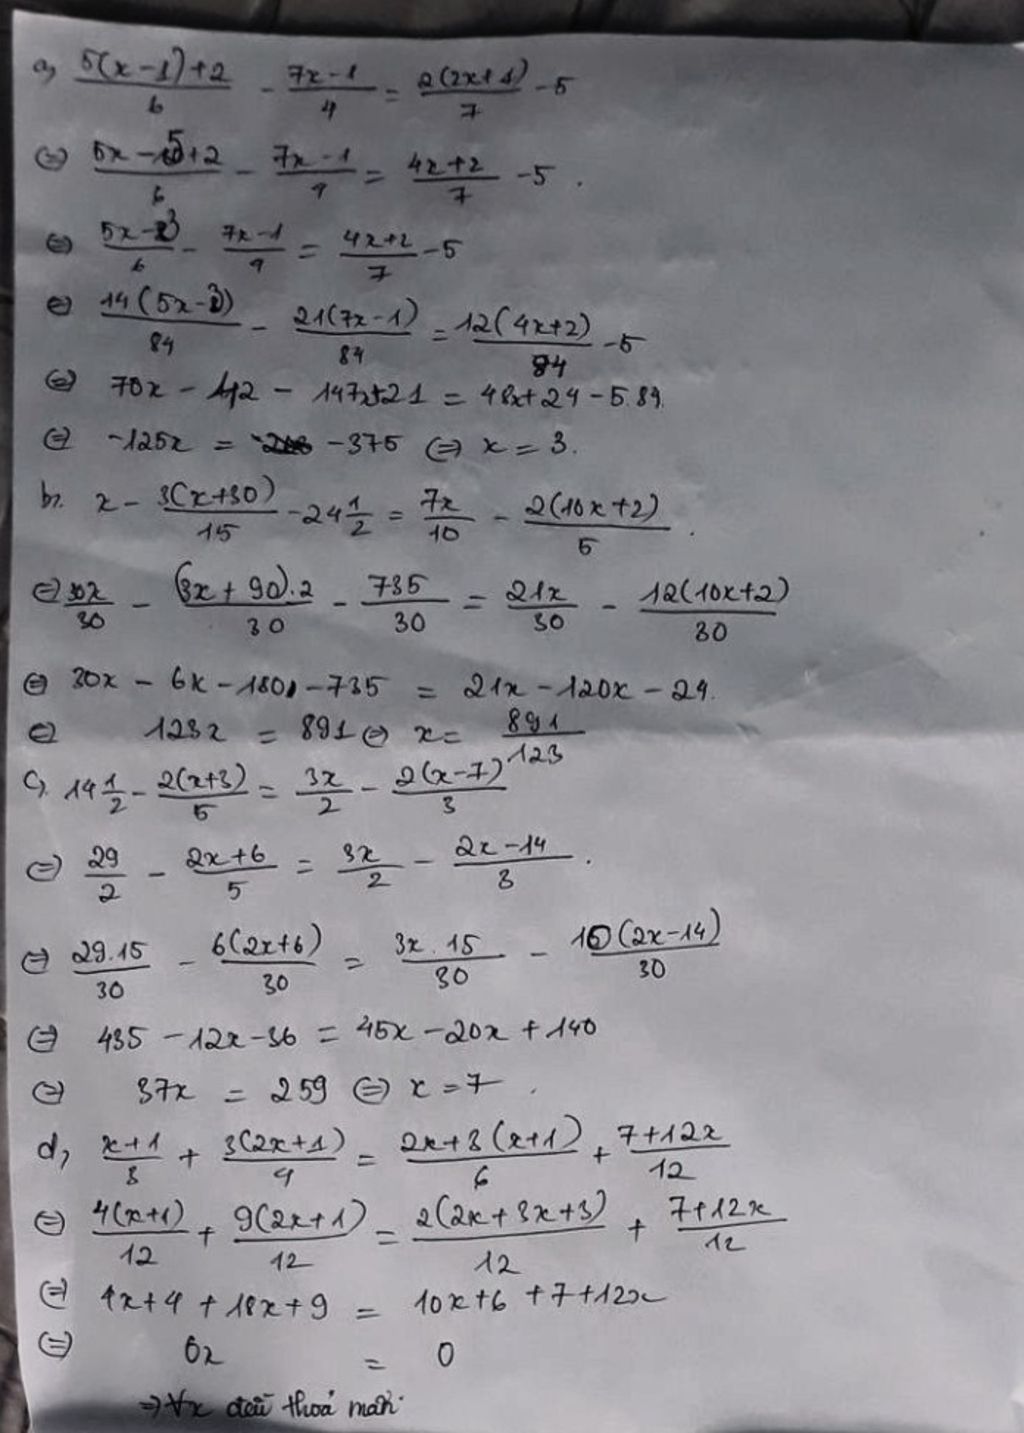 a, (5(x-1)+2)/6 - (7x-1)/4 = (2(2x+1))/7 - 5
⇔ (5x-5+2)/6 - (7x-1)/4 = (4x+2)/7 - 5.
⇔ (5x-3)/6 - (7x-1)/4 = (4x+2)/7 - 5
⇔ (14(5x-3))/84 - (21(7x-1))/84 = (12(4x+2))/84 - 5
⇔ 70x - 42 - 147x+21 = 48x+24 - 5.84.
⇔ -125x = -375 ⇔ x = 3.
b, x - (3(x+30))/15 - 24 1/2 = 7x/10 - (2(10x+2))/5.
⇔ 30x/30 - ((3x+90).2)/30 - 735/30 = 21x/30 - (12(10x+2))/30
⇔ 30x - 6x - 180 - 735 = 21x - 120x - 24.
⇔ 123x = 891 ⇔ x = 891/123
c, 14 1/2 - (2(x+3))/5 = 3x/2 - (2(x-7))/3
⇔ 29/2 - (2x+6)/5 = 3x/2 - (2x-14)/3.
⇔ 29.15/30 - (6(2x+6))/30 = (3x.15)/30 - (10(2x-14))/30
⇔ 435 - 12x - 36 = 45x - 20x + 140
⇔ 37x = 259 ⇔ x = 7.
d, (x+1)/3 + (3(2x+1))/4 = (2x+3(x+1))/6 + (7+12x)/12
⇔ (4(x+1))/12 + (9(2x+1))/12 = (2(2x+3x+3))/12 + (7+12x)/12
⇔ 4x+4 + 18x+9 = 10x+6 + 7+12x
⇔ 0x = 0
⇒ ∀x đều thoả mãn.